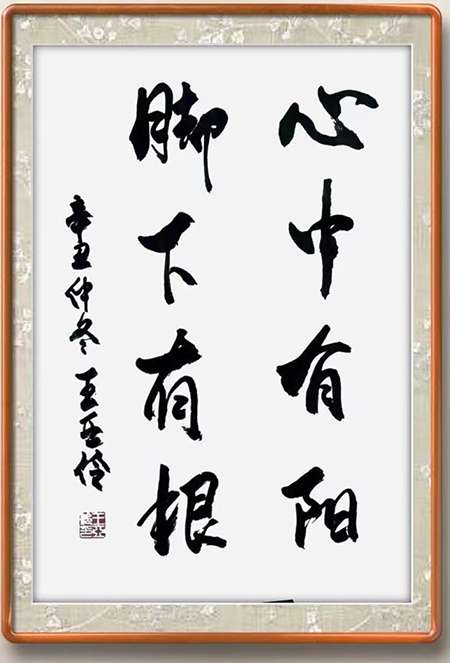 心中有阳
脚下有根
辛丑仲冬 王亚伶